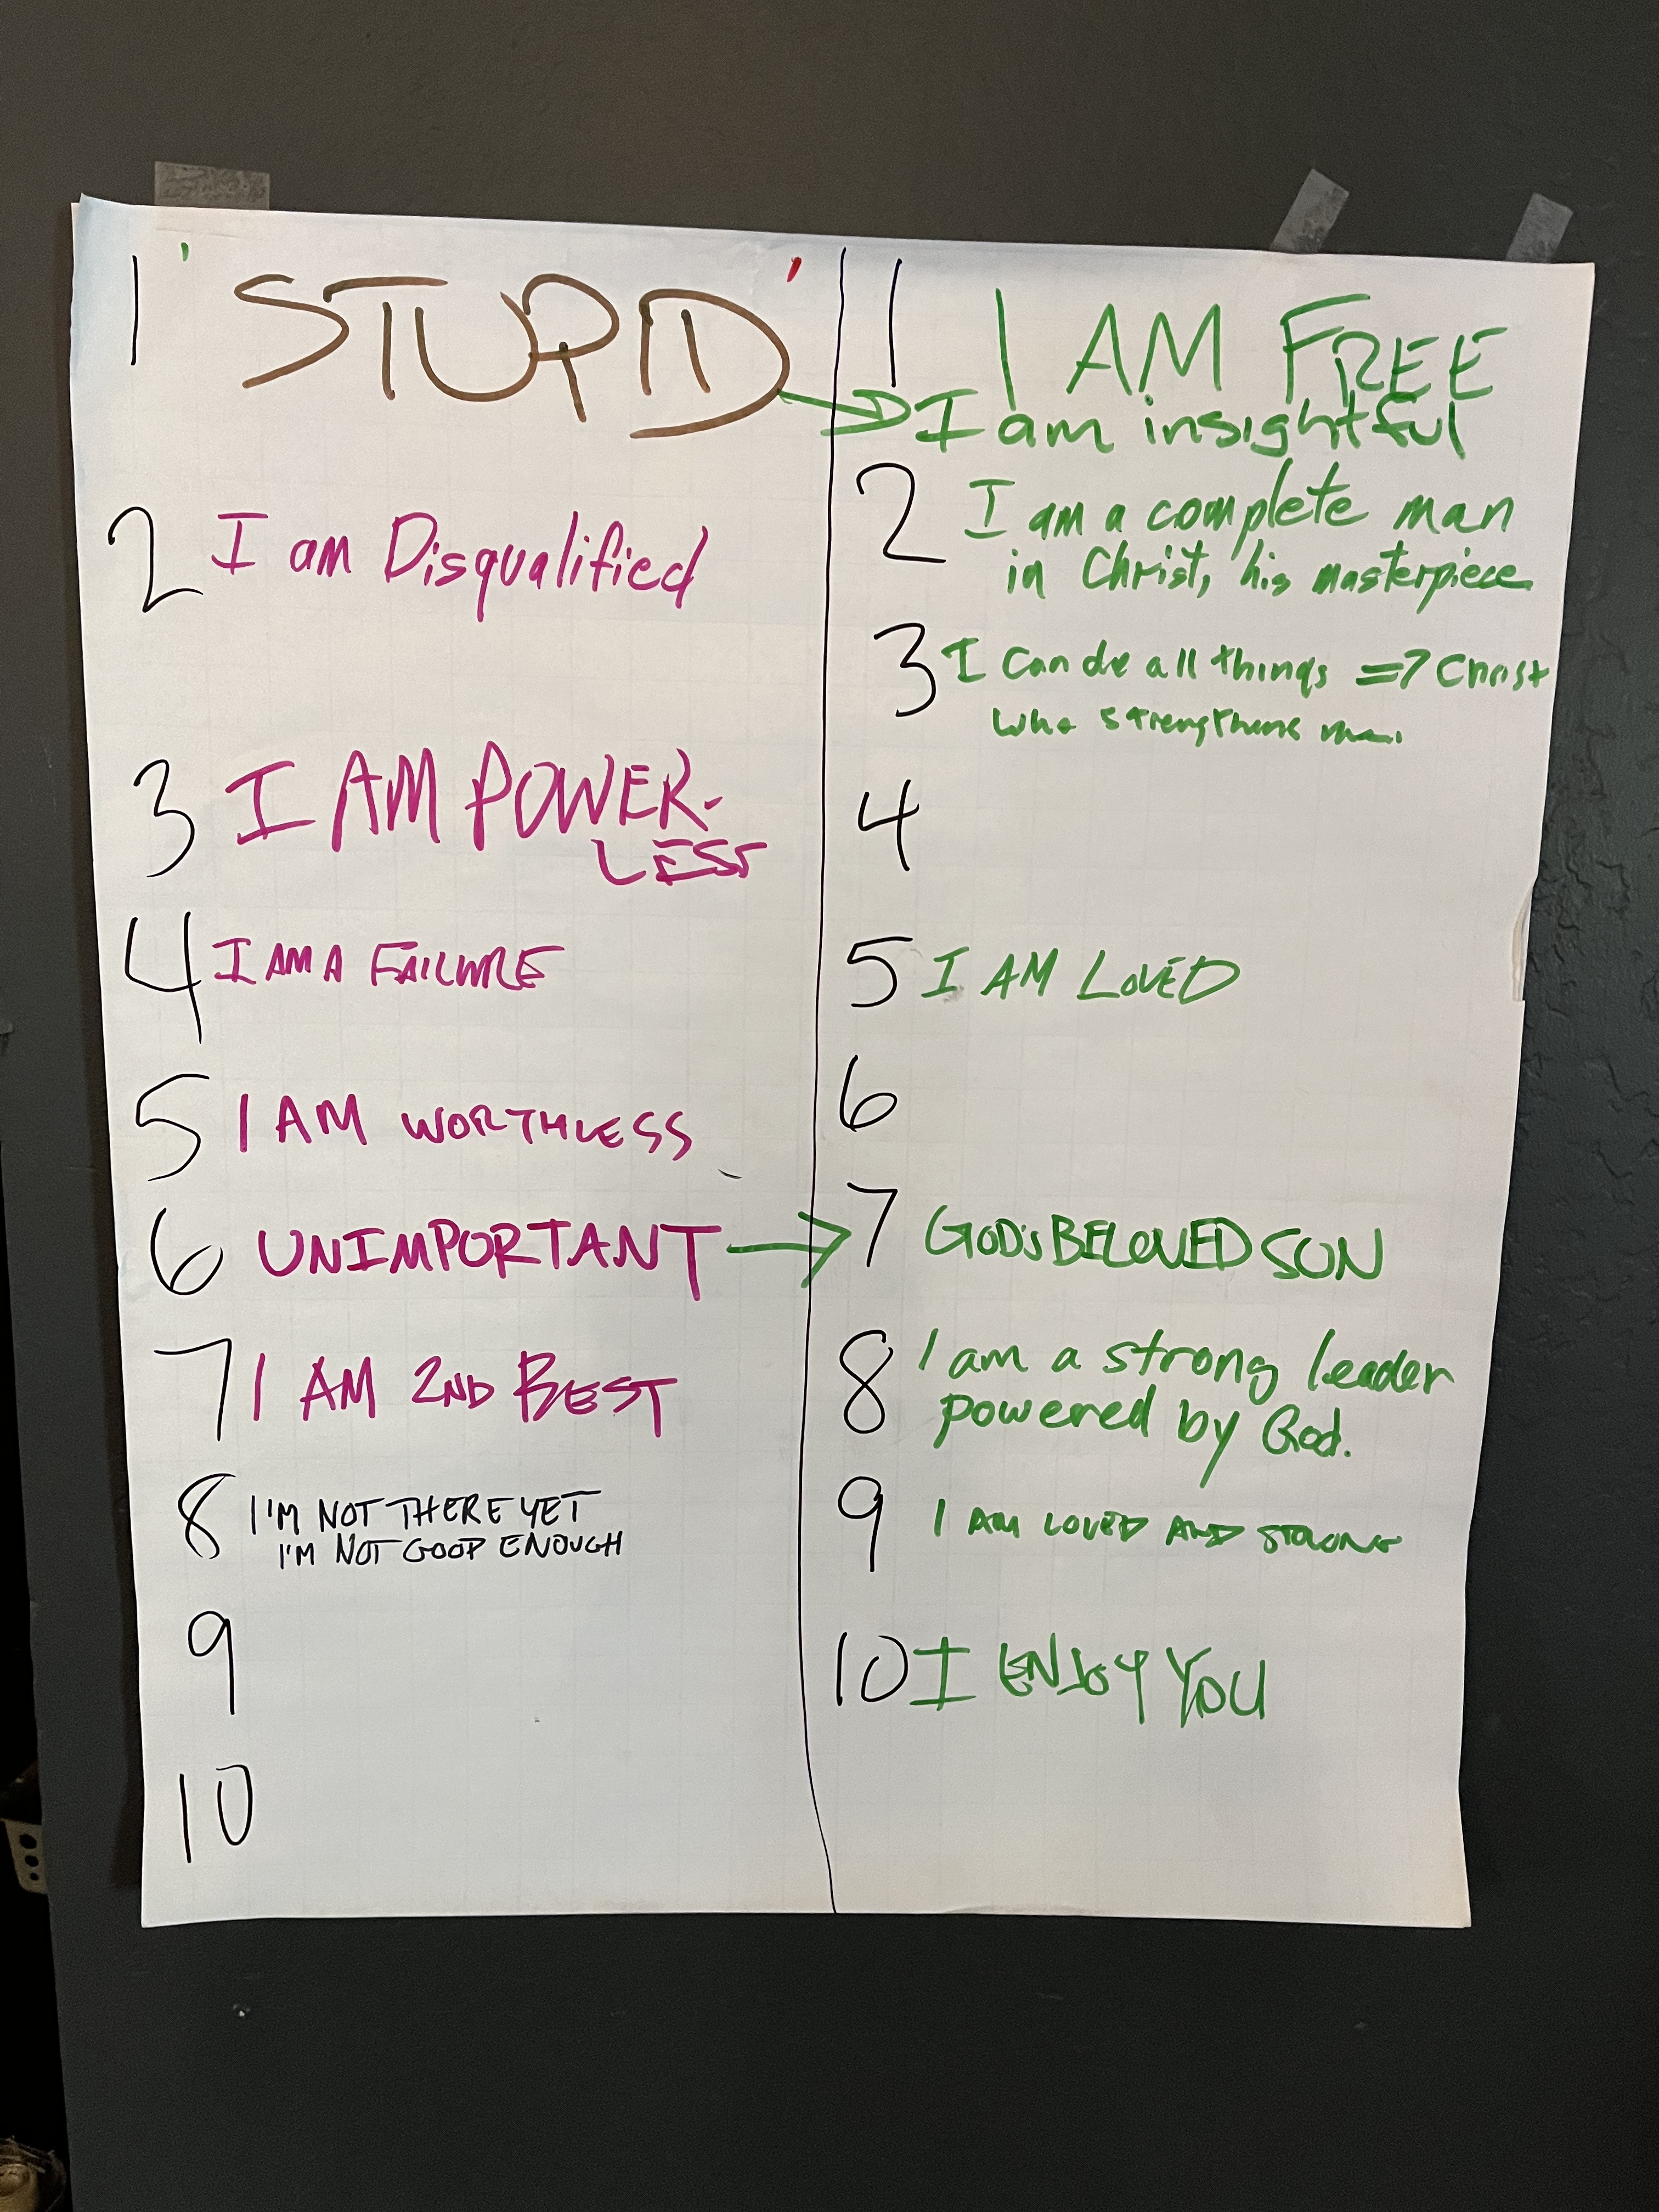 1 STUPID
2 I am Disqualified
3 I AM POWER-
LESS
4 I AM A FAILURE
5 I AM WORTHLESS
6 UNIMPORTANT →
7 I AM 2ND BEST
8 I'M NOT THERE YET
I'M NOT GOOD ENOUGH
9
10
1 I AM FREE
→ I am insightful
2 I am a complete man
in Christ, his masterpiece
3 I Can do all things => Christ
who strengthens me.
4
5 I AM LOVED
6
7 GOD'S BELOVED SON
8 I am a strong leader
powered by God.
9 I AM LOVED AND STRONG
10 I ENJOY YOU